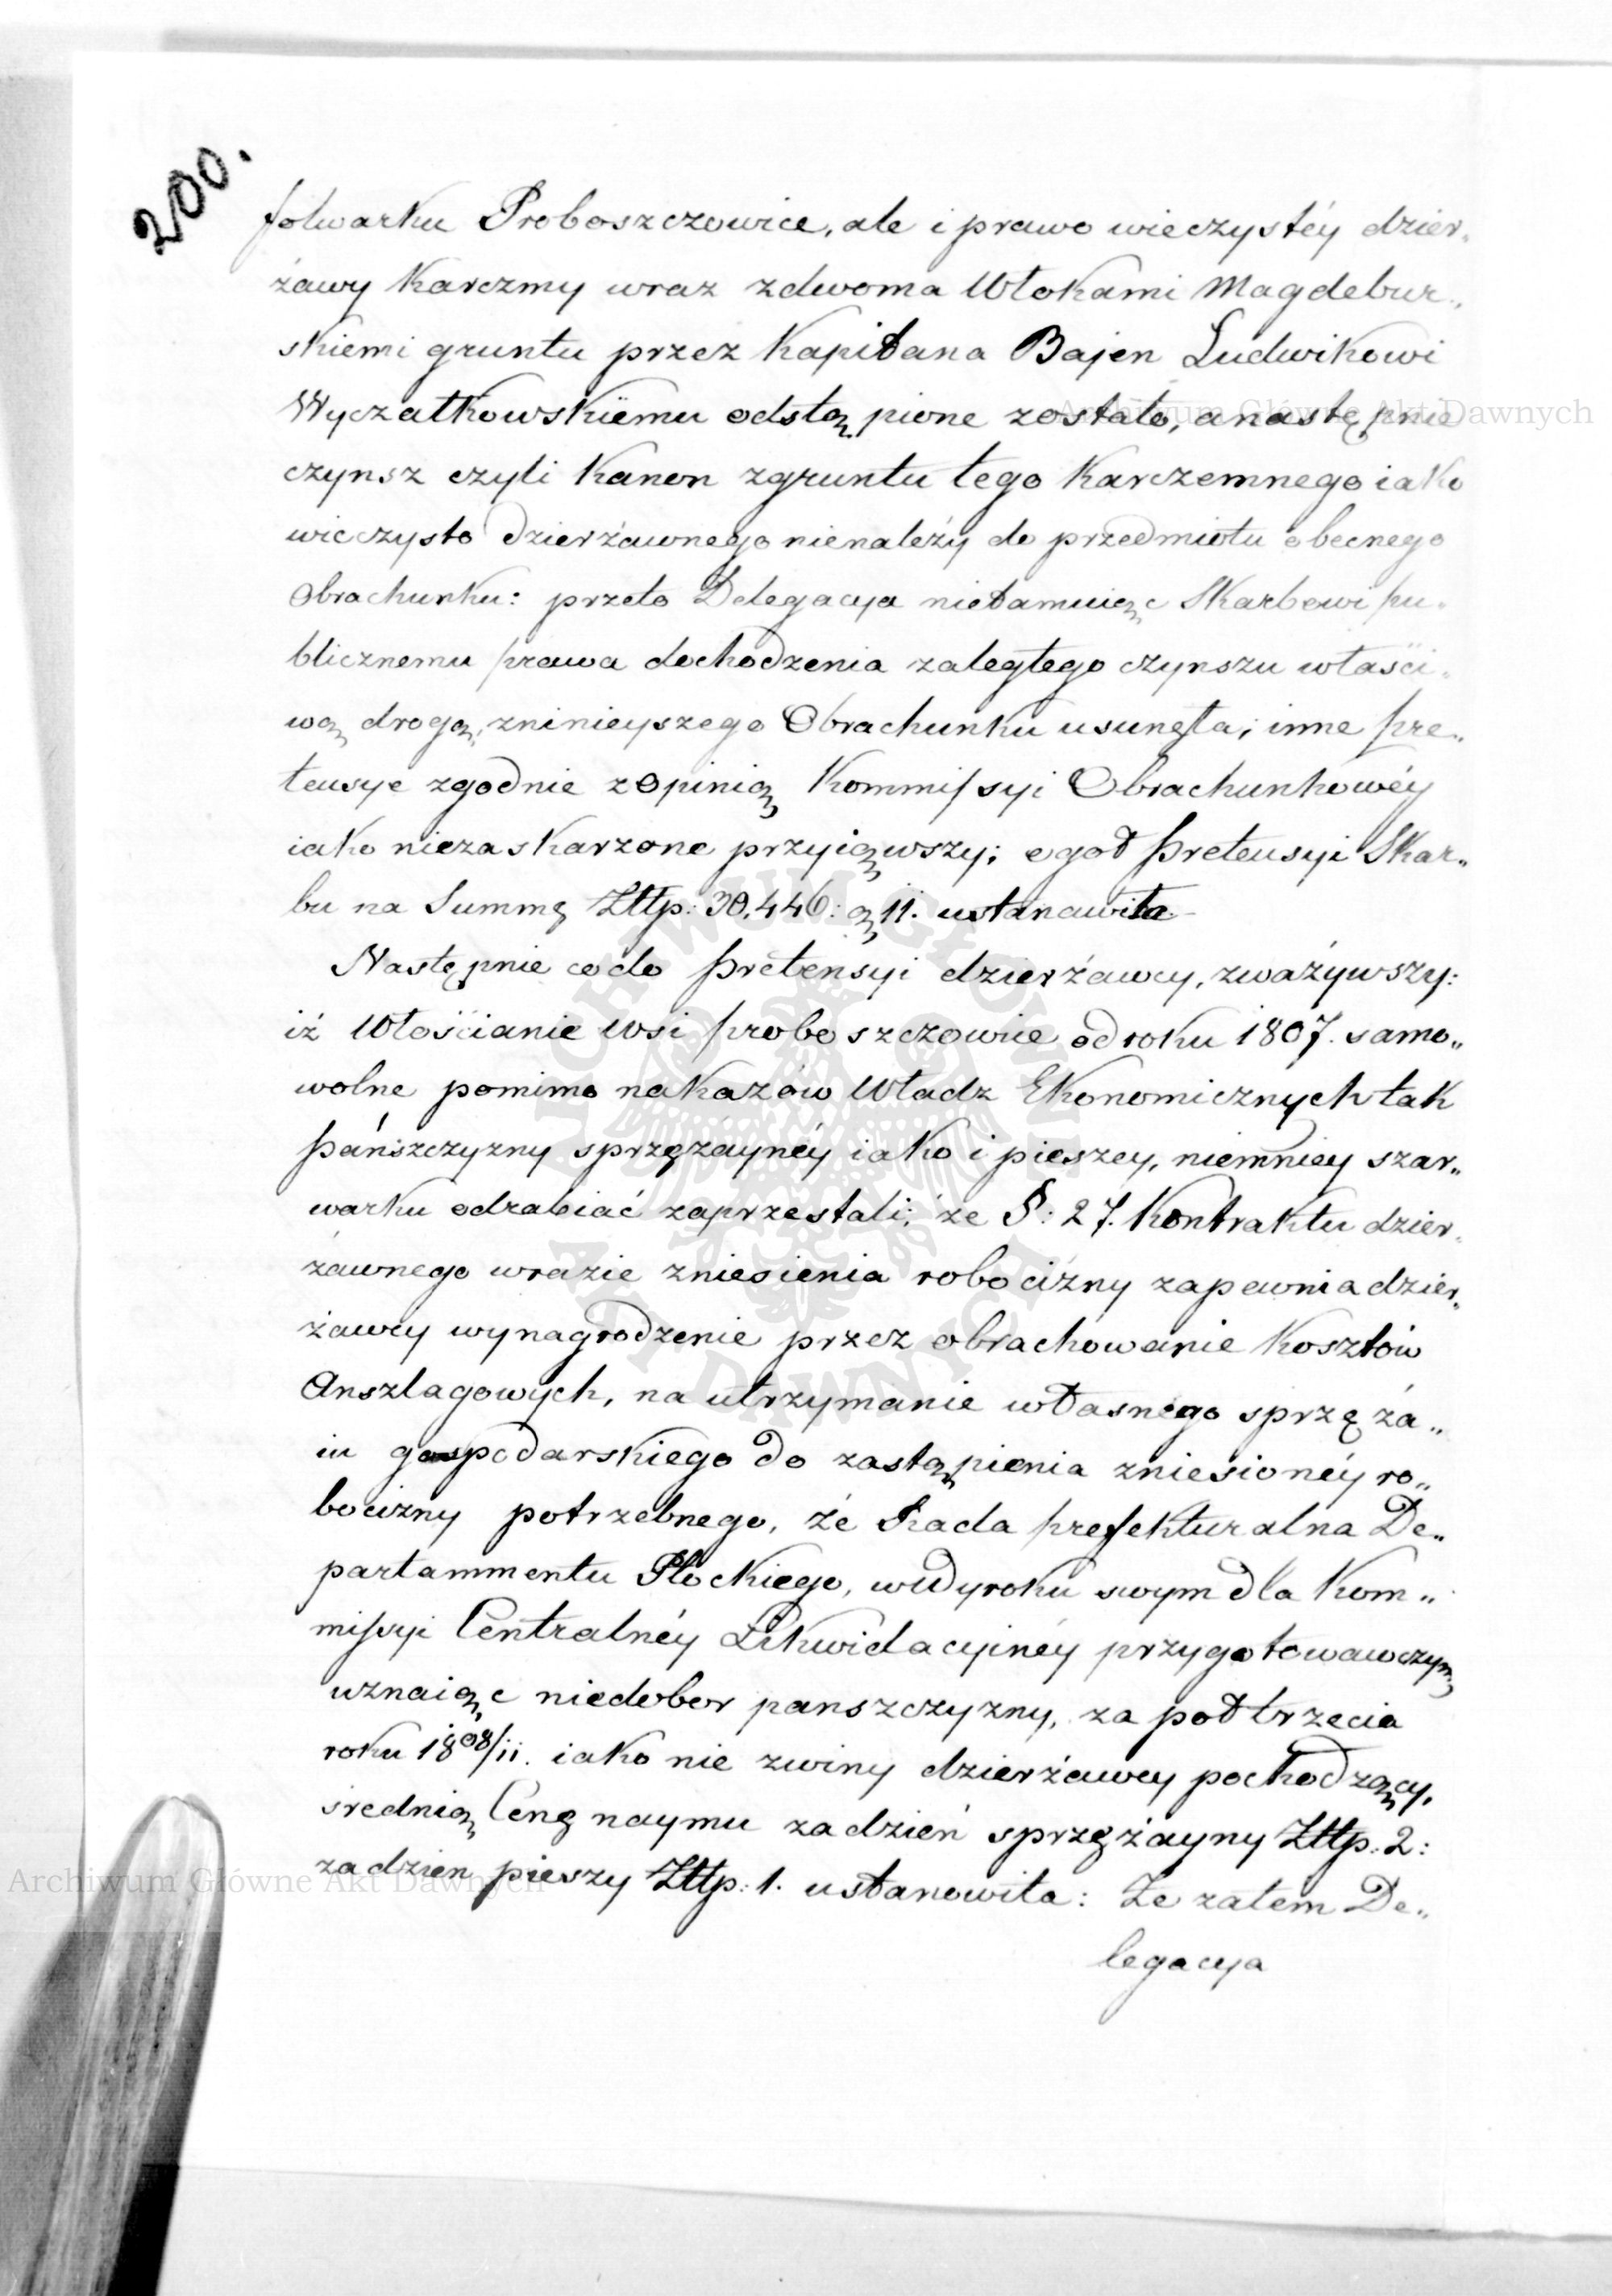 200.
folwarku Proboszczowice, ale i prawo wieczystéy dzier„
żawy Karczmy wraz zdwoma Włokami Magdebur„
skiemi gruntu przez Kapitana Bajen Ludwikowi
Wyczałkowskiemu odstąpione zostało, anastępnie
czynsz czyli Kanon zgruntu tego Karczemnego iako
wieczysto dzierżawnego nienależy do przedmiotu obecnego
Obrachunku: przeto Delegacya nietamuiąc Skarbowi pu„
blicznemu prawa dochodzenia zaległego czynszu właści„
wą drogą, zninieyszego Obrachunku usunęła; inne pre„
tensye zgodnie zopinią Kommissyi Obrachunkowéy
iako niezaskarzone przyiąwszy; ogoł pretensyi Skar„
bu na Summę Złłp: 30,446: g 11. ustanowiła. –
Następnie codo pretensyi dzierżawcy, zważywszy:
iż Włościanie Wsi proboszczowice od roku 1807. samo„
wolne pomimo nakazów Władz Ekonomicznych tak
pańszczyzny sprzężaynéy iako i pieszey, niemniey szar„
warku odrabiać zaprzestali; że §: 27. Kontraktu dzier„
żawnego wrazie zniesienia robocizny zapewnia dzier„
żawcy wynagrodzenie przez obrachowanie Kosztów
Anszlagowych, na utrzymanie własnego sprzęża„
iu gospodarskiego do zastąpienia zniesionéy ro„
bocizny potrzebnego, że Rada prefekturalna De„
partammentu Płockiego, wWyroku swym dla Kom„
missyi Centralnéy Likwidacyinéy przygotowawczym
uznaiąc niedobor panszczyzny, za poł trzecia
roku 1808/11. iako nie zwiny dzierżawcy pochodzący,
srednią Cenę naymu za dzień sprzężayny Złłp: 2:
za dzien pieszy Złłp: 1. ustanowiła: Ze zatem De„
legacya
Archiwum Główne Akt Dawnych
Archiwum Główne Akt Dawnych
ARCHIWUM GŁÓWNE
AKT DAWNYCH